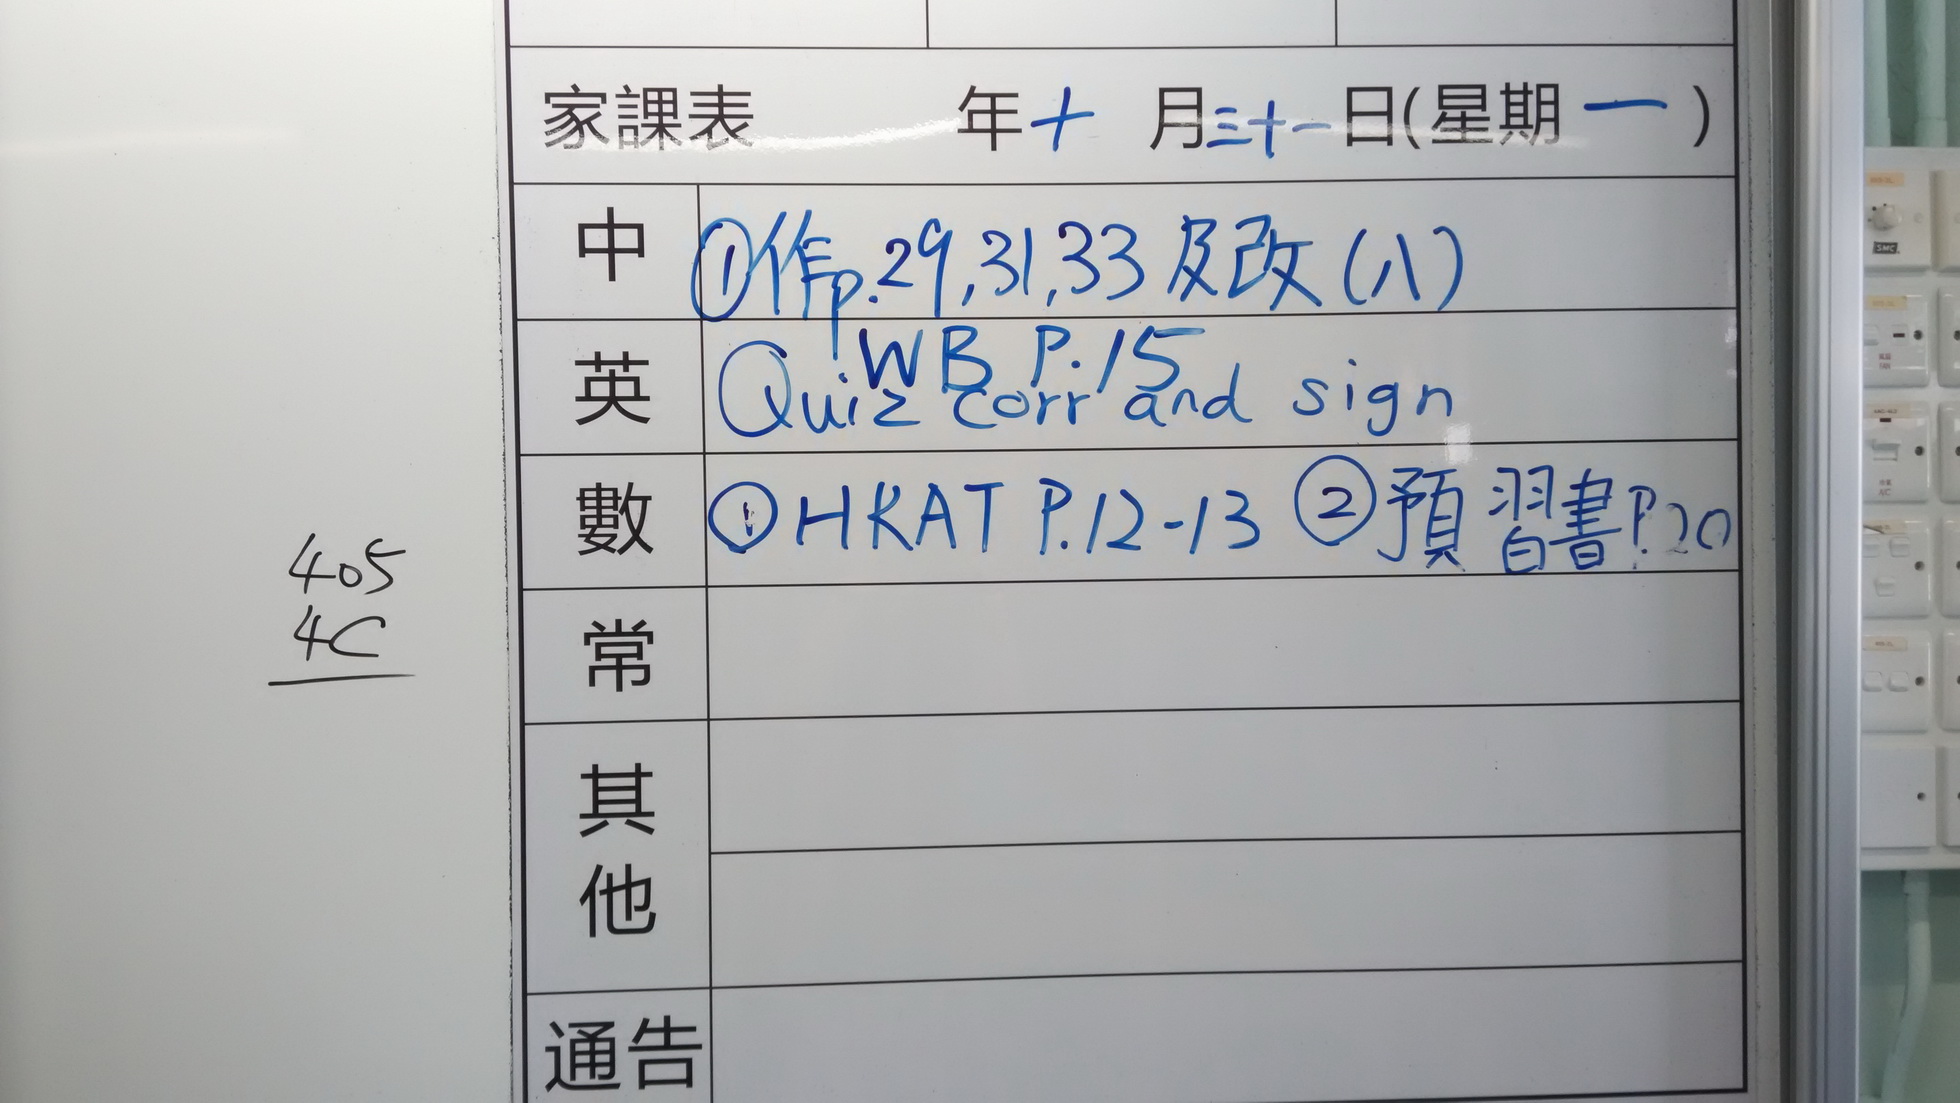 家課表 年十 月三十一日(星期一)
中 ①作p.29,31,33及改(八)
英 WB P.15
Quiz corr and sign
數 ①HKAT P.12-13 ②預習書P.20
常
其他
通告
405
4C